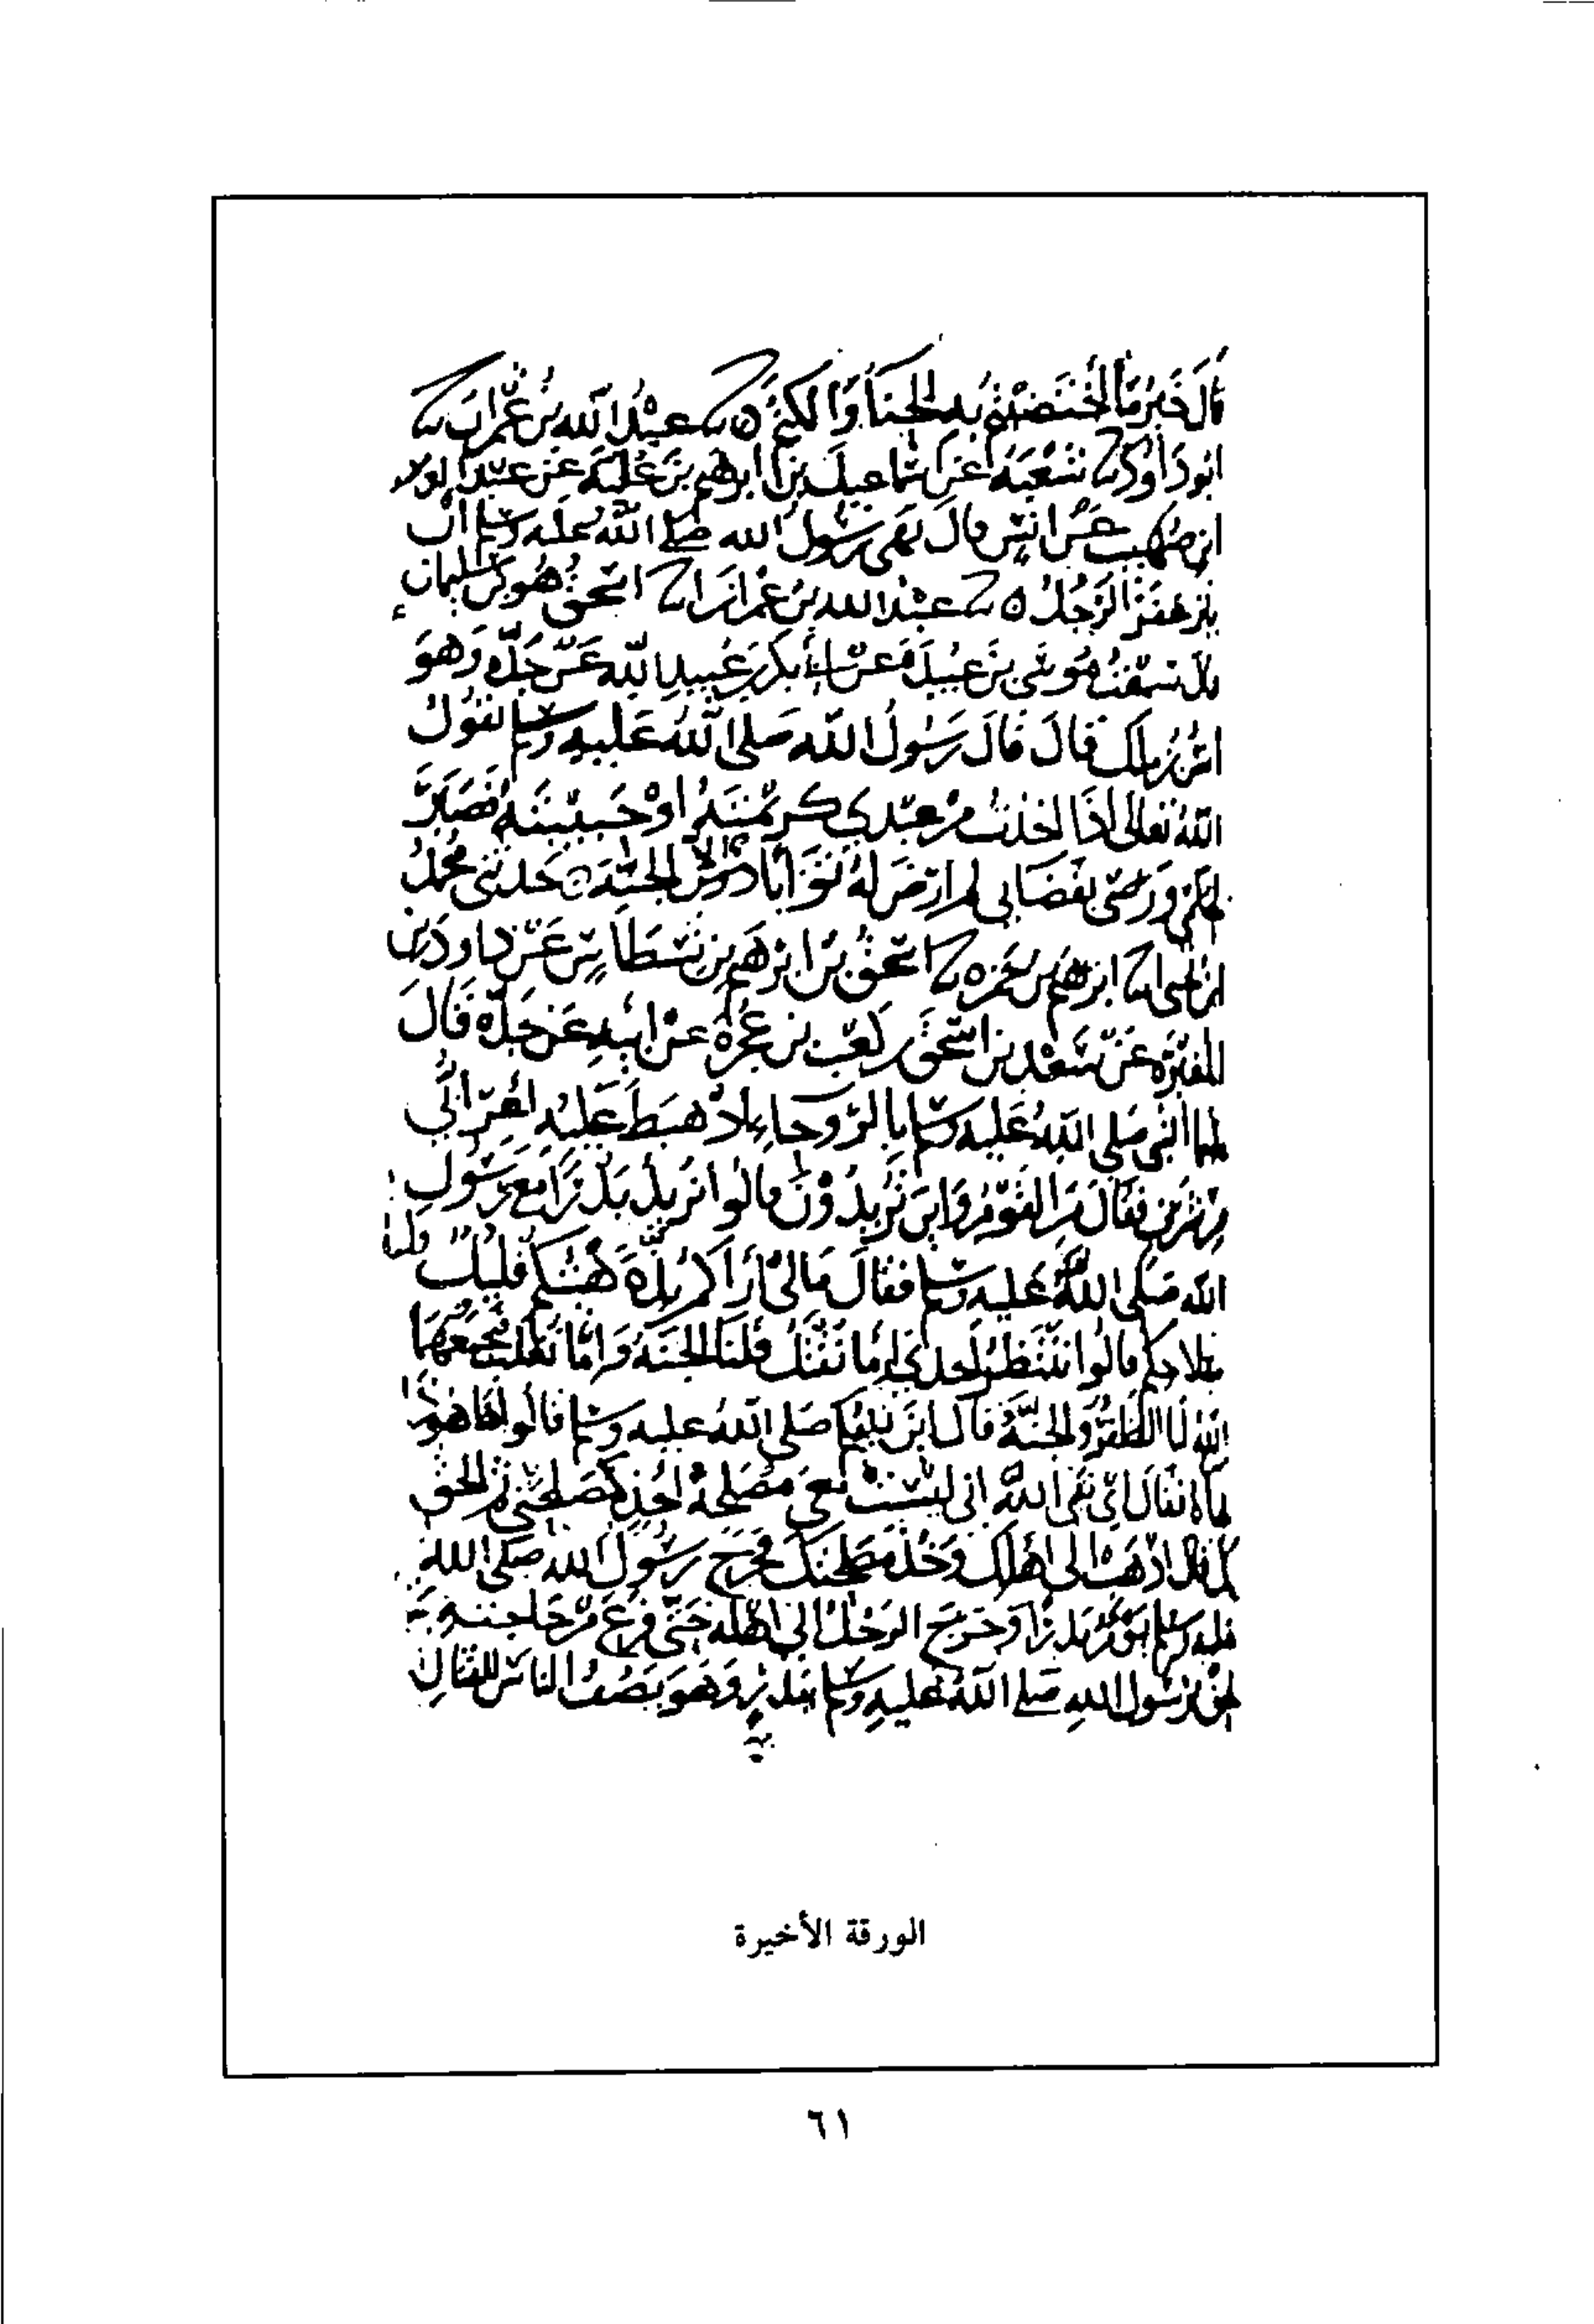 قال خير ما اختضبتم به الحنا والكتم ٥ نا عبد الله بن عمران نا
ابو داود نا شعبة عن اسماعيل بن ابرهيم بن علية عن عبد
ابن صهيب عن انس قال نهى رسول الله صلى الله عليه وسلم ان
يتزعفر الرجل ٥ نا عبد الله بن عمران نا اسحق هو بن سليمان
قال سمعت موسى بن عبيدة عن بكر بن عبيد الله عن جده وهو
انس بن ملك قال قال رسول الله صلى الله عليه وسلم يقول
الله تعالى اذا اخذت من عبدي كريمتيه او حبيبتيه فصبر
ورضى بقضايى لم ارض له ثوابا دون الجنة ٥ حدثنى محمد
ابرهيم بن حمزه نا اسحق بن ابرهيم بن نسطاس عن داود بن
المغيره عن سعد بن اسحق كعب بن عجرة عن ابيه عن جده قال
النبى صلى الله عليه وسلم بالروحا اذ هبط عليه اعرابي
فقال من القوم واين تريدون قالوا نريد بدرا مع رسول
الله صلى الله عليه وسلم فقال مالى اراكم بذة هيئتكم قليلا
سلاحكم قالوا ننتظر احدى اما نقتل فلنا الجنة واما نغلب
الله لنا الظفر والجنة قال اين نبيكم صلى الله عليه وسلم قالوا هاهوذا
فقال انى نبى الله انى ليست معى مصلحة اخذ مصلحتى ثم الحق
قال اذهب الى اهلك وخذ مصلحتك فخرج رسول الله صلى الله
عليه وسلم بدرا وخرج الرجل الى اهله حتى فرغ من حاجته
لحق برسول الله صلى الله عليه وسلم ببدر وهو يصف الناس للقتال
الورقة الأخيرة
٦١